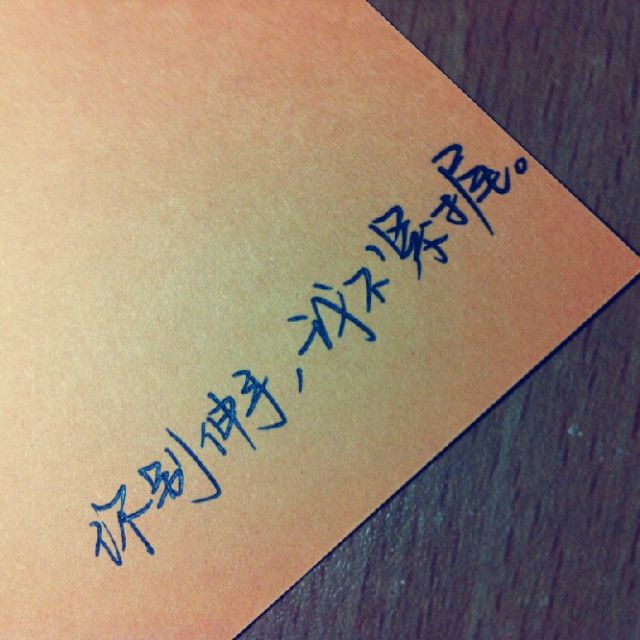 你别伸手，我不紧握。